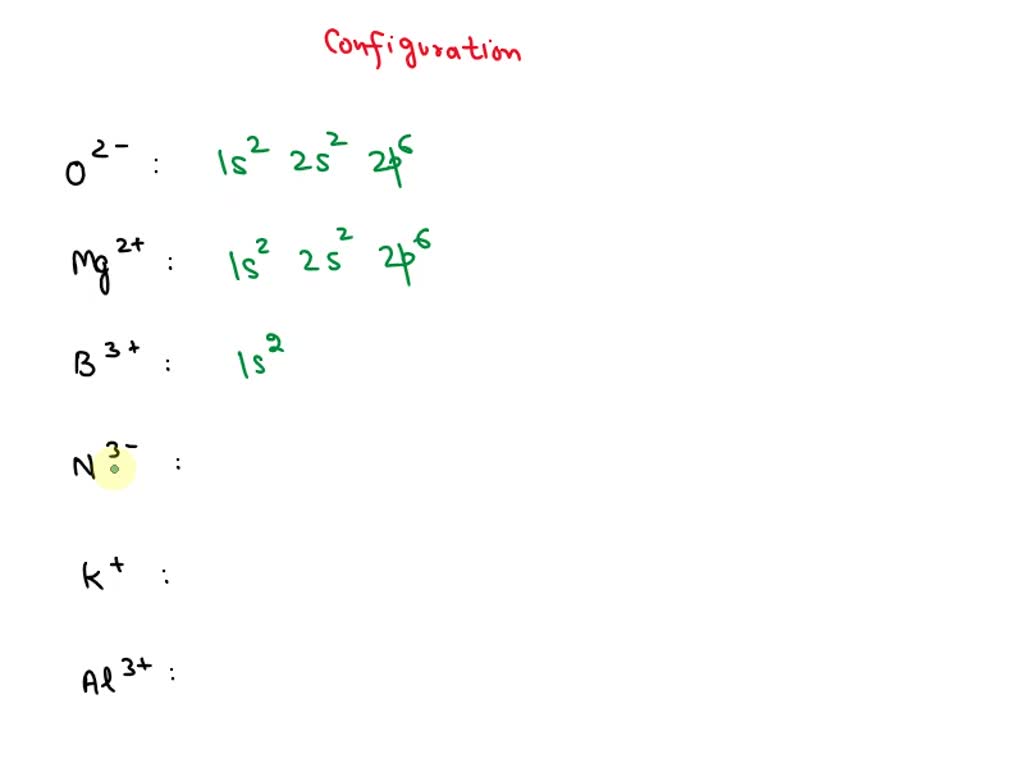 Configuration
O²⁻ : 1s² 2s² 2p⁶
Mg²⁺ : 1s² 2s² 2p⁶
B³⁺ : 1s²
N³⁻ :
K⁺ :
Al³⁺ :